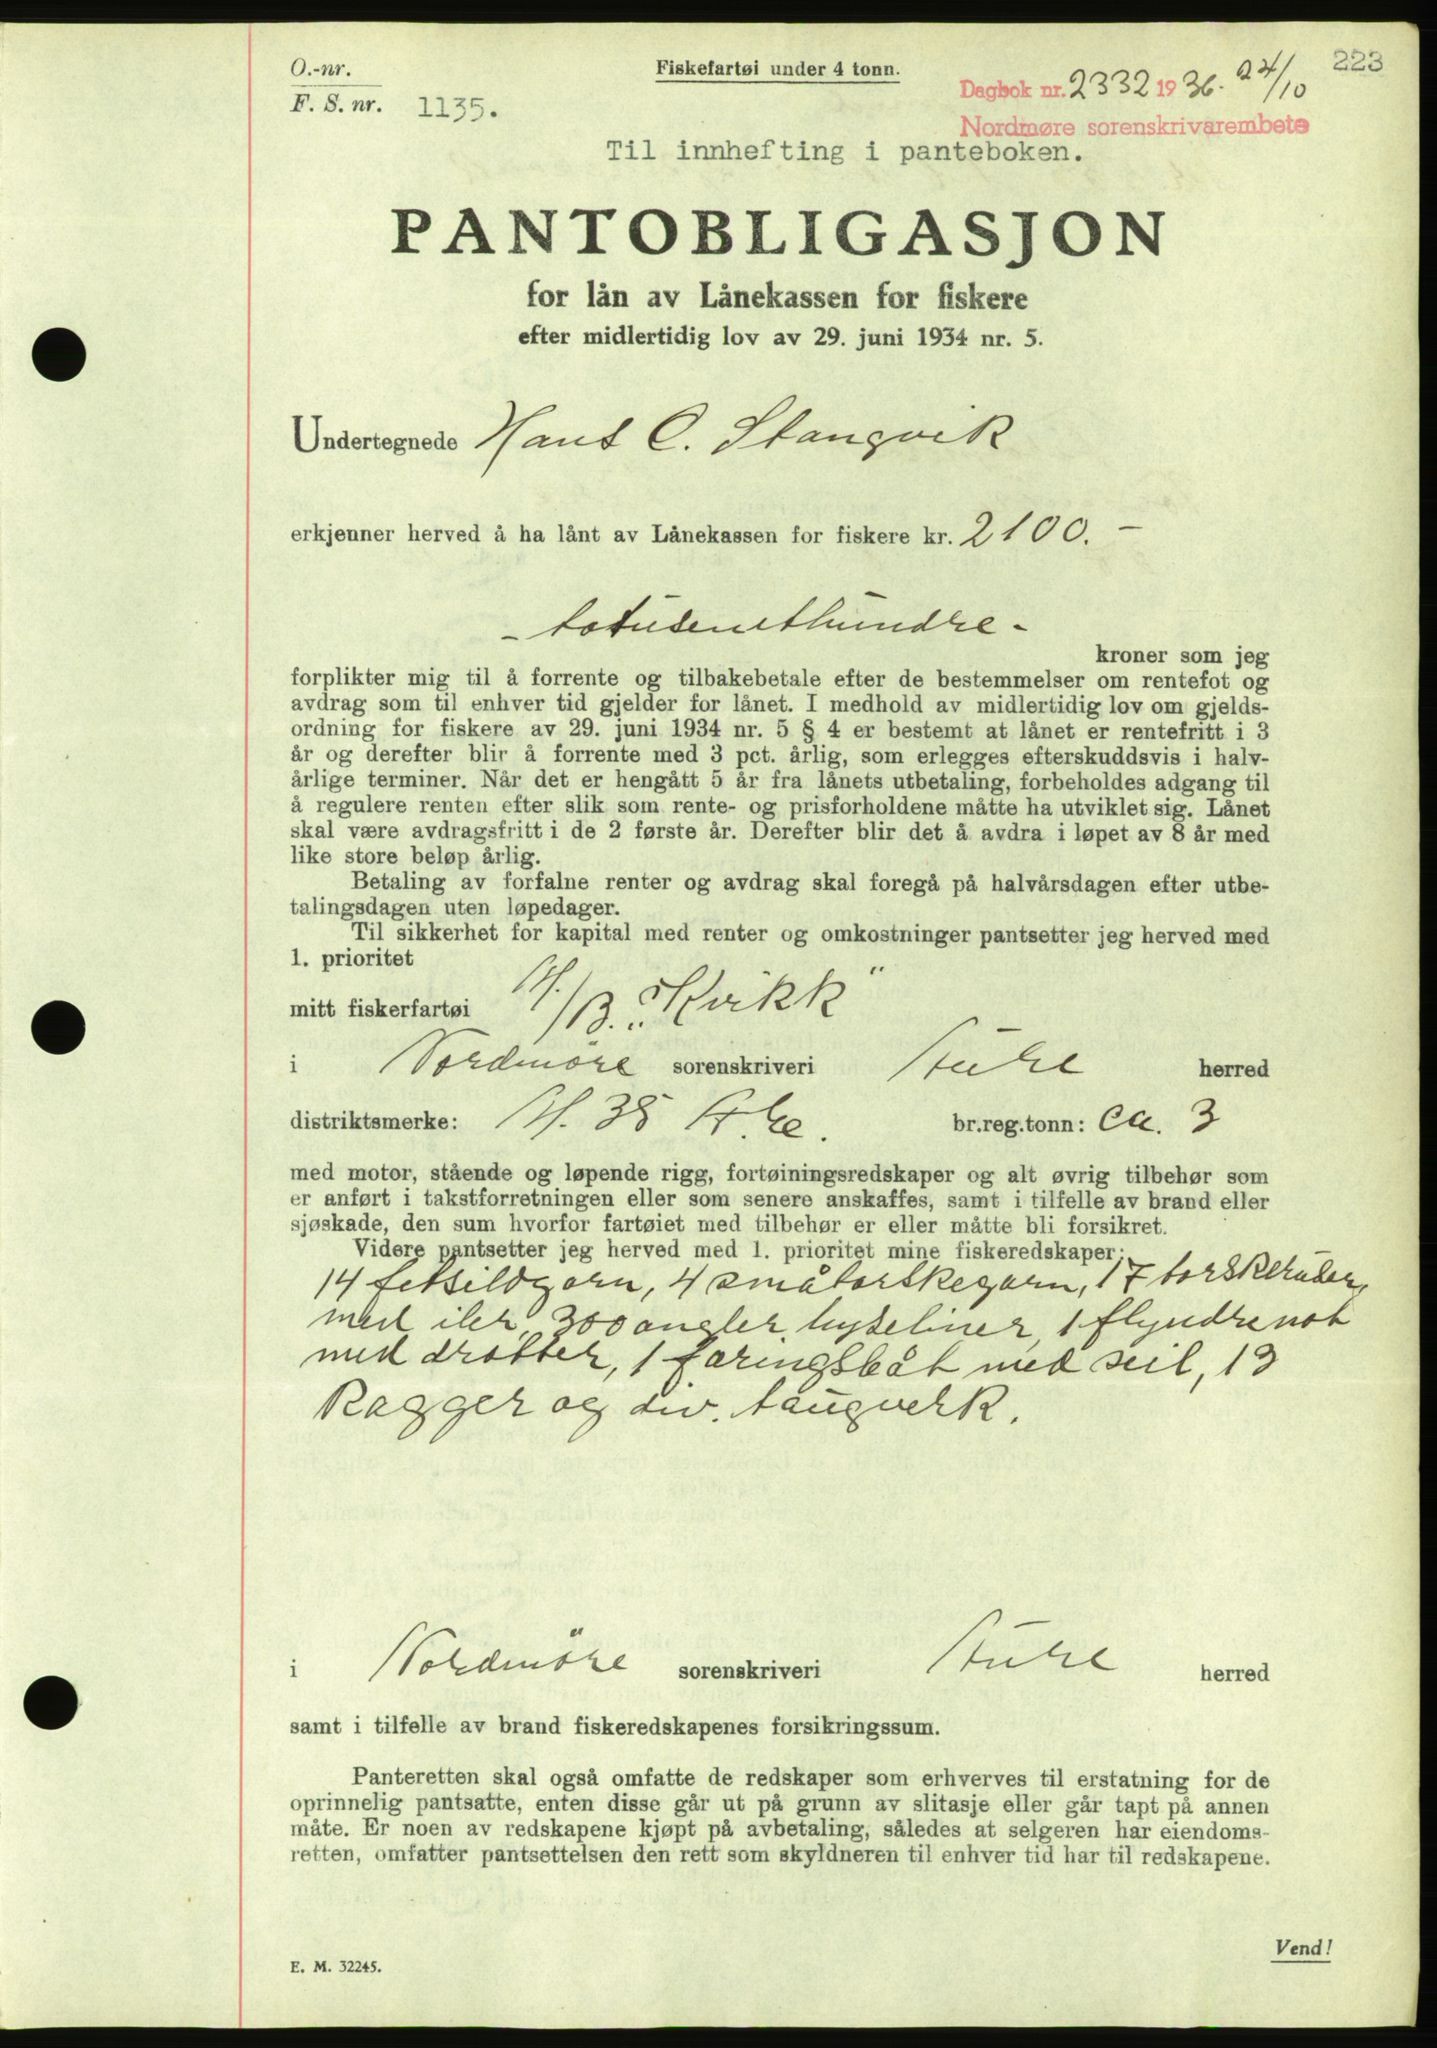 O.-nr.
F. S. nr. 1135.
Fiskefartøi under 4 tonn.
223
Dagbok nr. 2332 1936. 24/10
Nordmøre sorenskrivarembete
Til innhefting i panteboken.
PANTOBLIGASJON
for lån av Lånekassen for fiskere
efter midlertidig lov av 29. juni 1934 nr. 5.
Undertegnede Hans C. Stangvik
erkjenner herved å ha lånt av Lånekassen for fiskere kr. 2100.–
- totusenethundre -
kroner som jeg
forplikter mig til å forrente og tilbakebetale efter de bestemmelser om rentefot og
avdrag som til enhver tid gjelder for lånet. I medhold av midlertidig lov om gjelds-
ordning for fiskere av 29. juni 1934 nr. 5 § 4 er bestemt at lånet er rentefritt i 3
år og derefter blir å forrente med 3 pct. årlig, som erlegges efterskuddsvis i halv-
årlige terminer. Når det er hengått 5 år fra lånets utbetaling, forbeholdes adgang til
å regulere renten efter slik som rente- og prisforholdene måtte ha utviklet sig. Lånet
skal være avdragsfritt i de 2 første år. Derefter blir det å avdra i løpet av 8 år med
like store beløp årlig.
Betaling av forfalne renter og avdrag skal foregå på halvårsdagen efter utbe-
talingsdagen uten løpedager.
Til sikkerhet for kapital med renter og omkostninger pantsetter jeg herved med
1. prioritet
mitt fiskerfartøi M/B. „Kvikk"
i Nordmöre sorenskriveri Aure herred
distriktsmerke: M. 38 A.re. br.reg.tonn: ca. 3
med motor, stående og løpende rigg, fortøiningsredskaper og alt øvrig tilbehør som
er anført i takstforretningen eller som senere anskaffes, samt i tilfelle av brand eller
sjøskade, den sum hvorfor fartøiet med tilbehør er eller måtte bli forsikret.
Videre pantsetter jeg herved med 1. prioritet mine fiskeredskaper:
14 fetsildgarn, 4 småtorskegarn, 17 torskeruser,
med iler, 300 angler hyseliner, 1 flyndrenot
med drotter, 1 færingsbåt med seil, 13
Kagger og div. taugverk.
i Nordmöre sorenskriveri Aure herred
samt i tilfelle av brand fiskeredskapenes forsikringssum.
Panteretten skal også omfatte de redskaper som erhverves til erstatning for de
oprinnelig pantsatte, enten disse går ut på grunn av slitasje eller går tapt på annen
måte. Er noen av redskapene kjøpt på avbetaling, således at selgeren har eiendoms-
retten, omfatter pantsettelsen den rett som skyldneren til enhver tid har til redskapene.
Vend!
E. M. 32245.